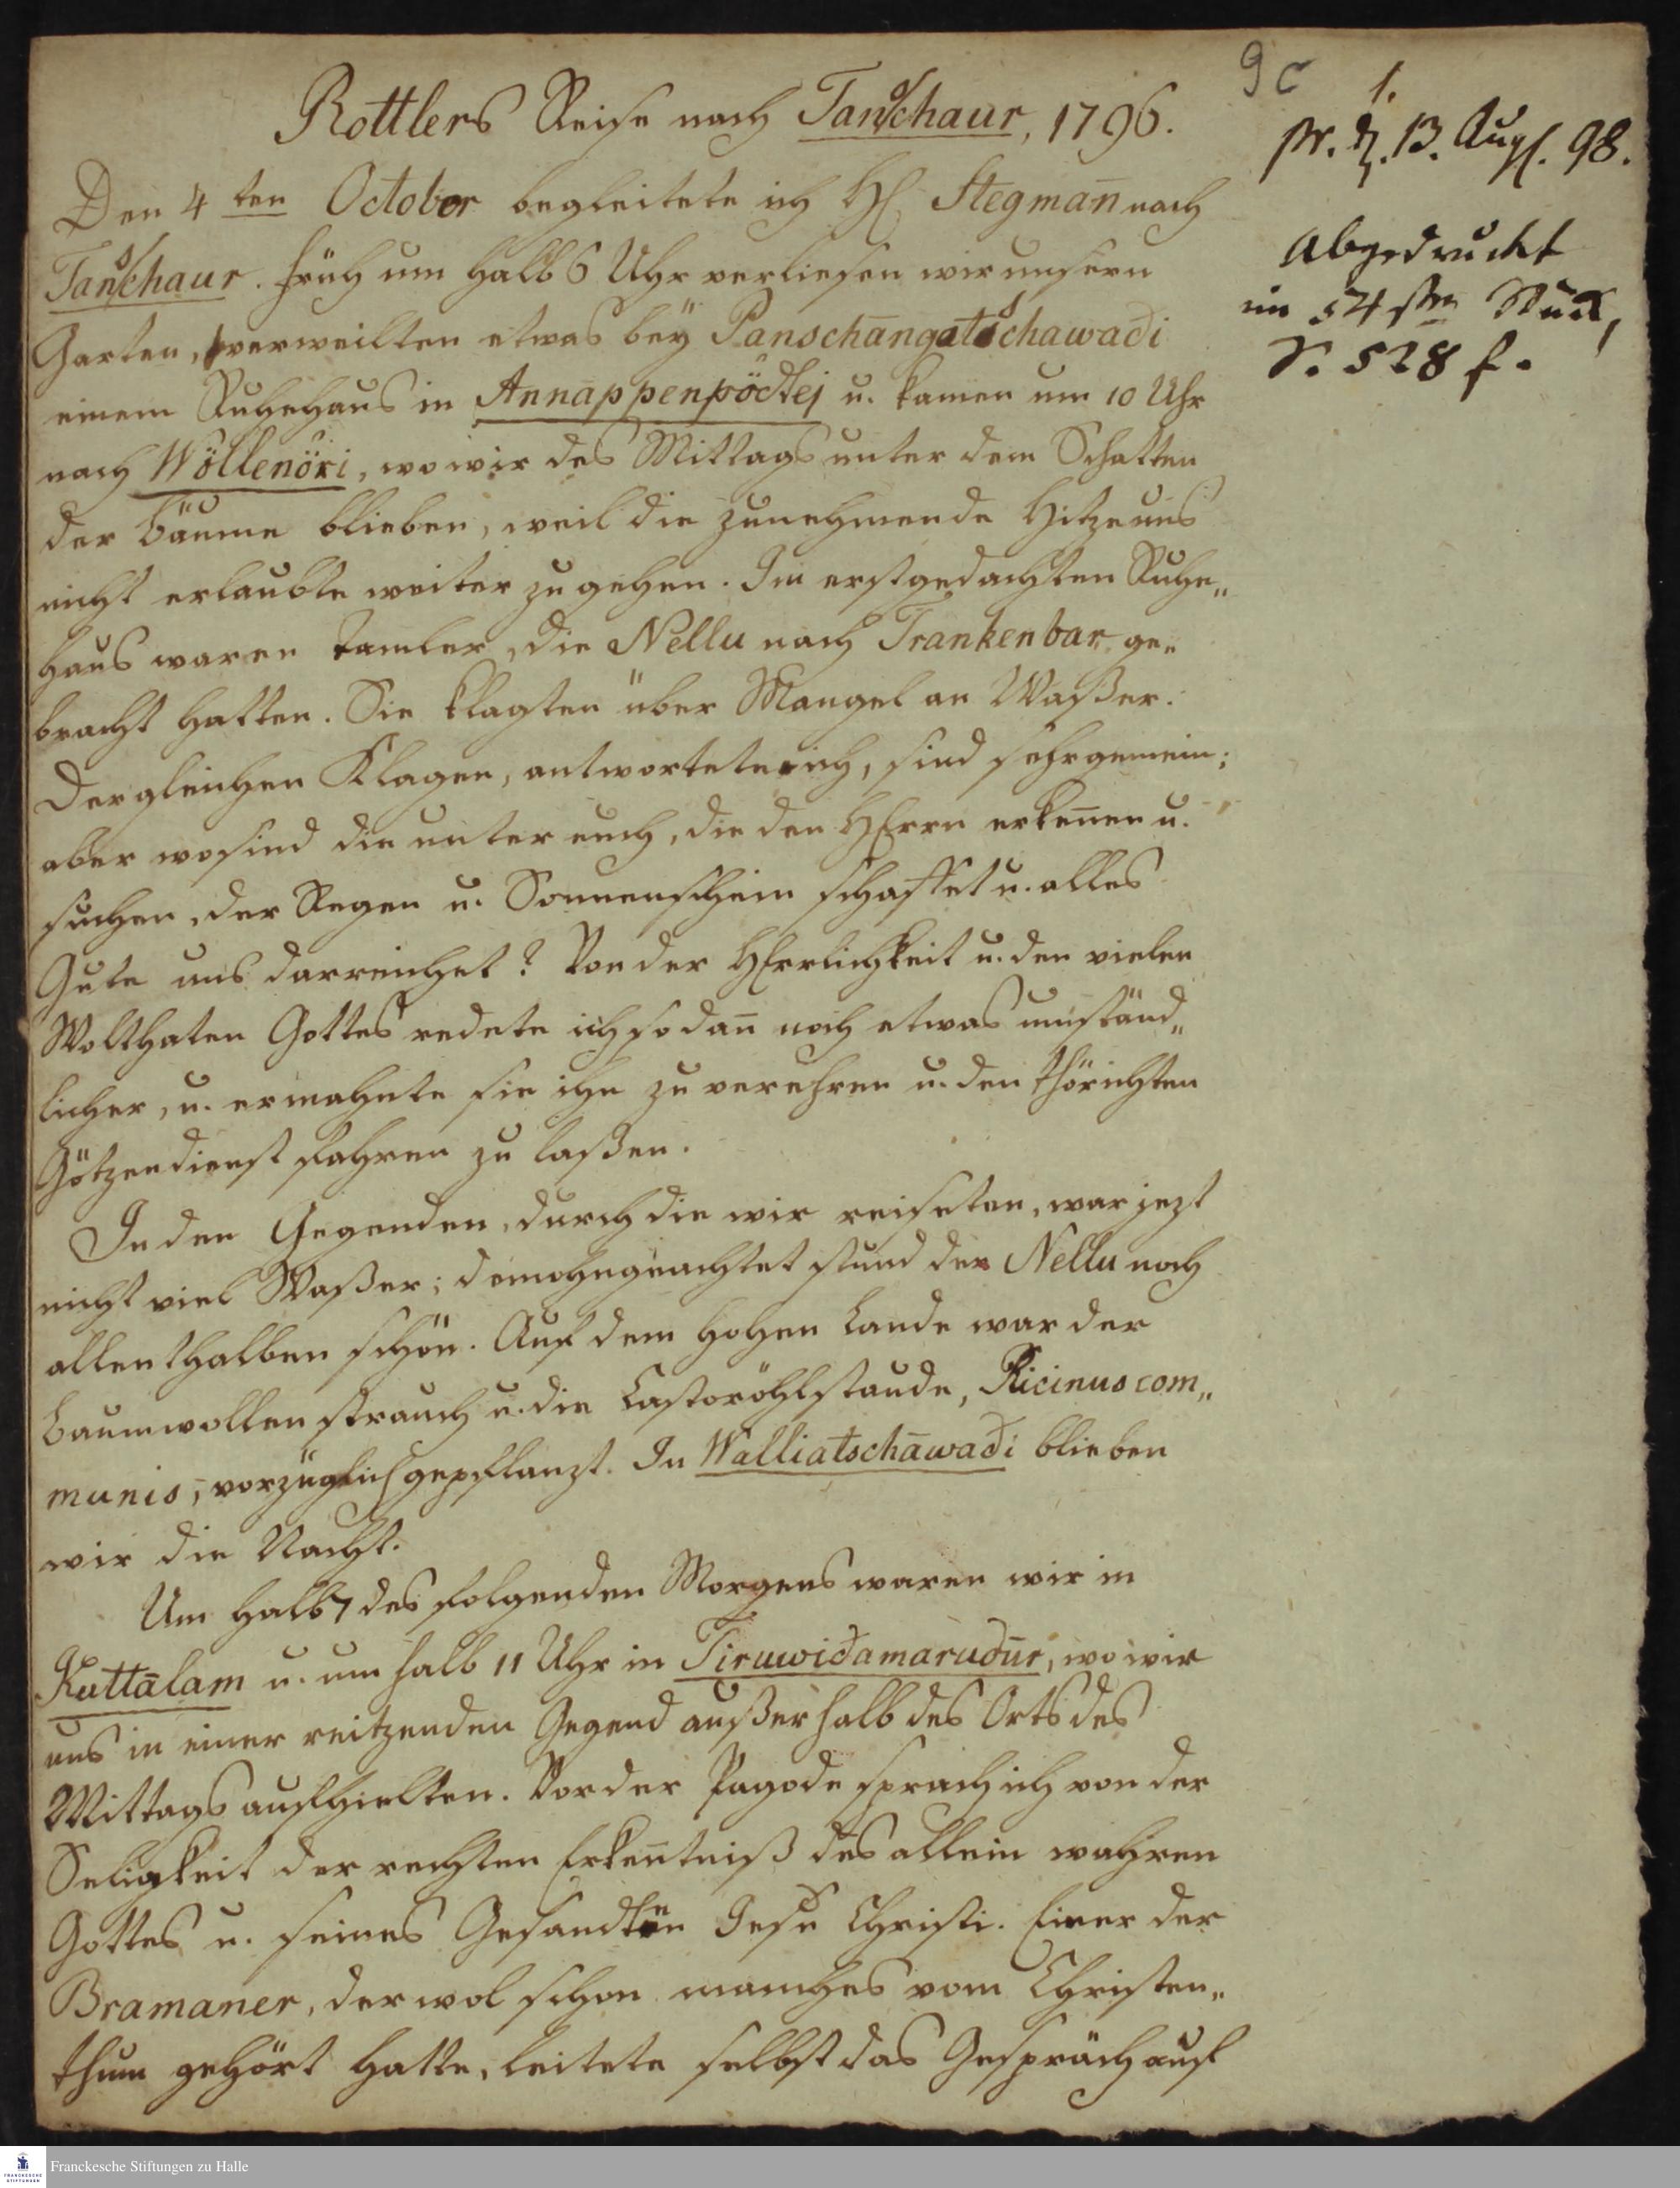 9c
1.
pr. d. 13. Aug. 98.
Abgedruckt
im 54sten Stück,
S. 528 f.
Rottlers Reise nach Tanschaur, 1796.
Den 4ten October begleitete ich H. Stegman̄ nach
Tanschaur. Früh um halb 6 Uhr verliesen wir unsern
Garten, verweilten etwas bey Panschāngatschawadi
einem Ruhehaus in Annappenpödtej u. kamen um 10 Uhr
nach Wöllenöri, wo wir des Mittags unter dem Schatten
der Bäume blieben, weil die zunehmende Hitze uns
nicht erlaubte weiter zu gehen. Im erstgedachten Ruhe„
haus waren Tamler, die Nellu nach Trankenbar ge„
bracht hatten. Sie klagten über Mangel an Waßer.
Dergleichen Klagen, antwortete ich, sind sehr gemein;
aber wo sind die unter euch, die den HErrn erken̄en u.
suchen, der Regen u. Sonnenschein schaffet u. alles
Gute uns darreichet? Von der HErrlichkeit u. den vielen
Wolthaten Gottes redete ich sodan̄ noch etwas umständ„
licher, u. ermahnte sie ihn zu verehren u. den thörichten
Götzendienst fahren zu laßen.
In den Gegenden, durch die wir reiseten, war jezt
nicht viel Waßer; demohngeachtet stund der Nellu noch
allenthalben schön. Auf dem hohen Lande war der
Baumwollenstrauch u. die Castoröhlstaude, Ricinus com„
munis, vorzüglich gepflanzt. In Walliatschāwadi blieben
wir die Nacht.
Um halb 7 des folgenden Morgens waren wir in
Kuttālam u. um halb 11 Uhr in Tiruwidamarudūr, wo wir
uns in einer reitzenden Gegend außerhalb des Orts des
Mittags aufhielten. Vor der Pagode sprach ich von der
Seligkeit der rechten Erken̄tniß des allein wahren
Gottes u. seines Gesandten Jesu Christi. Einer der
Bramaner, der wol schon manches vom Christen„
thum gehört hatte, leitete selbst das Gespräch auf
FRANCKESCHE
STIFTUNGEN
Franckesche Stiftungen zu Halle